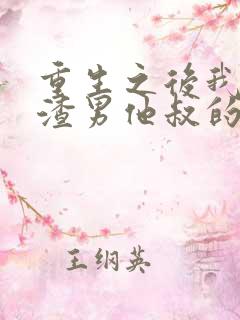 重生之後我
渣男他叔的
王纲英